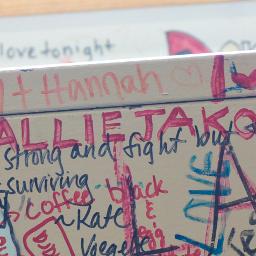 love tonight
+ Hannah ♡
ALLIE JAKO
strong and fight but
surviving.
coffee black
~ Kate
& egg
Voegele
LOVE